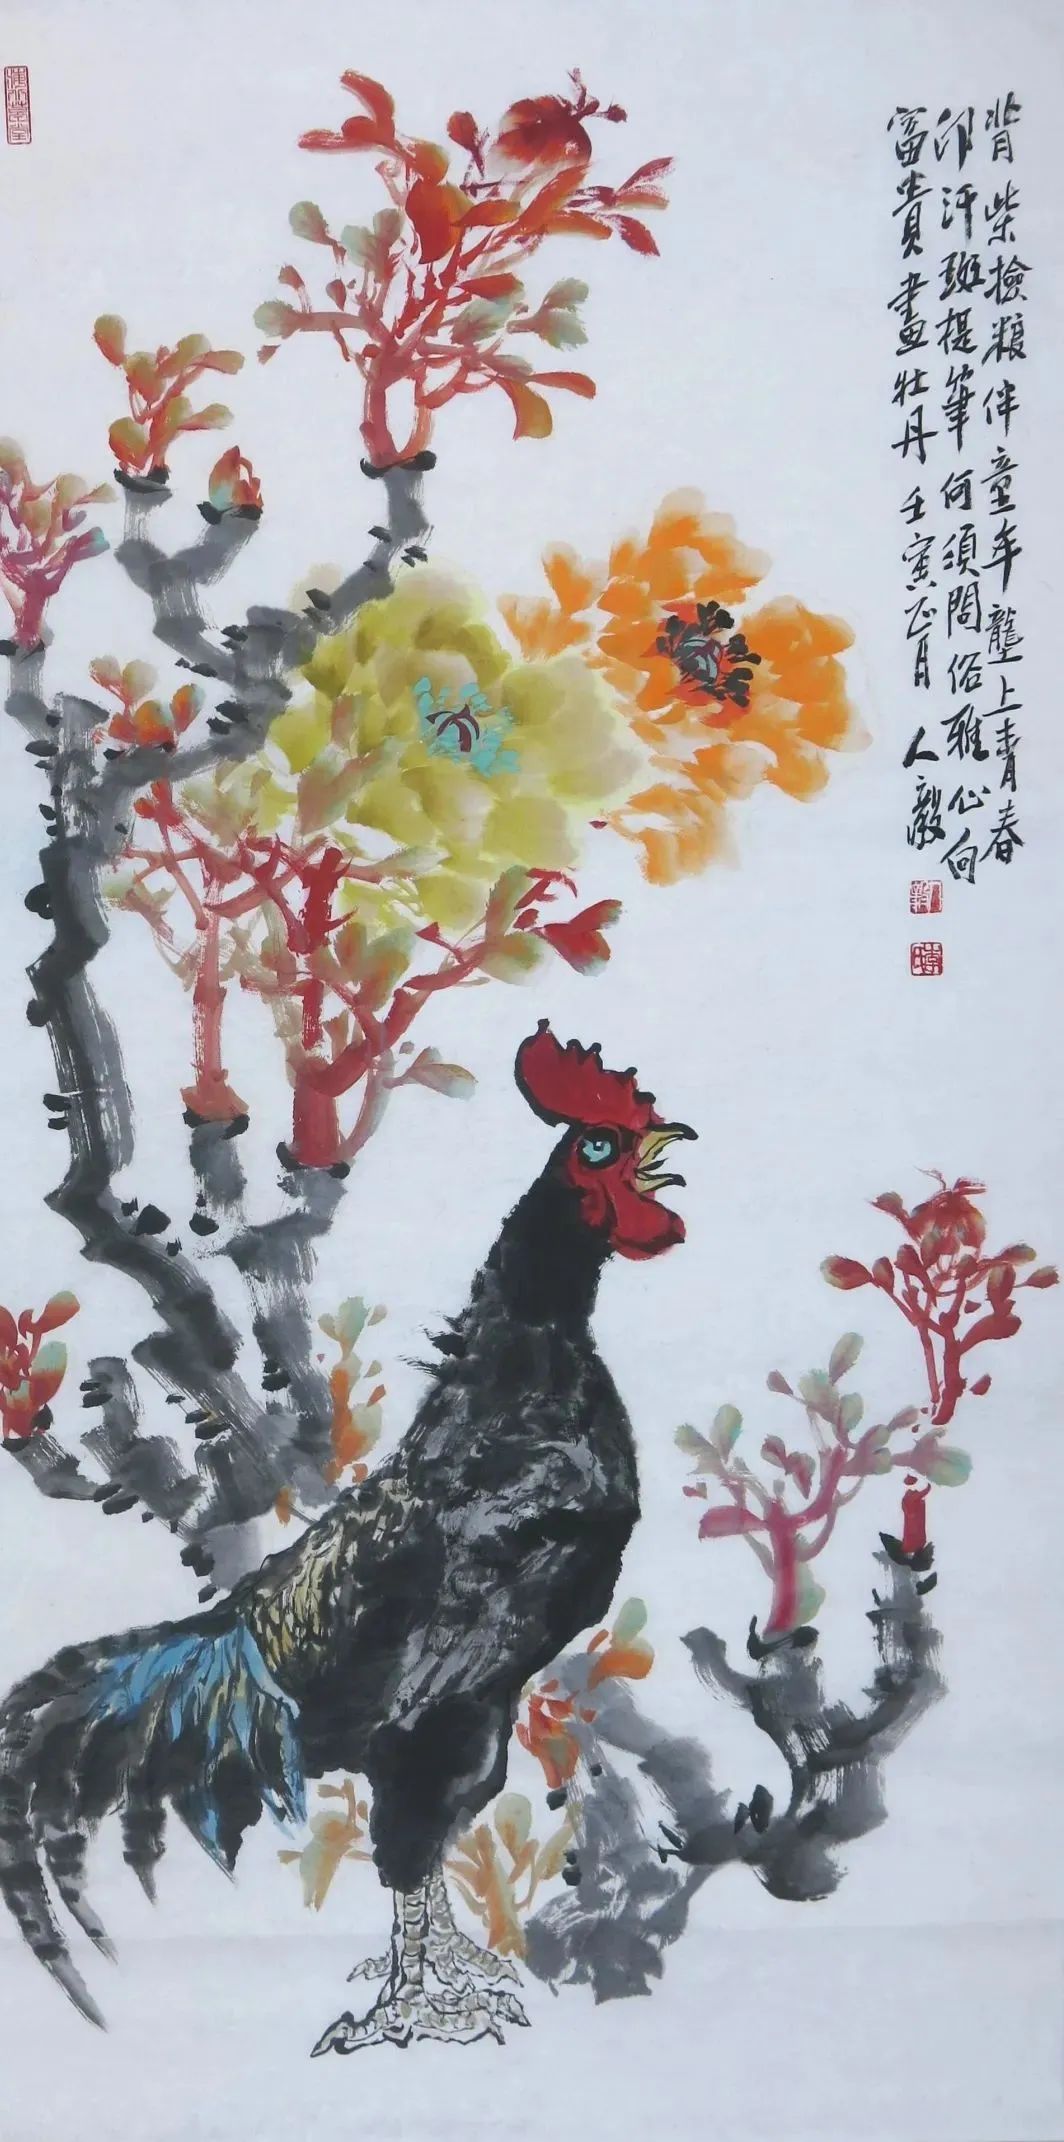 背柴撿粮伴童年壟上青春
印汗斑提筆何須問俗雅心向
富貴畫牡丹 壬寅正月 人毅